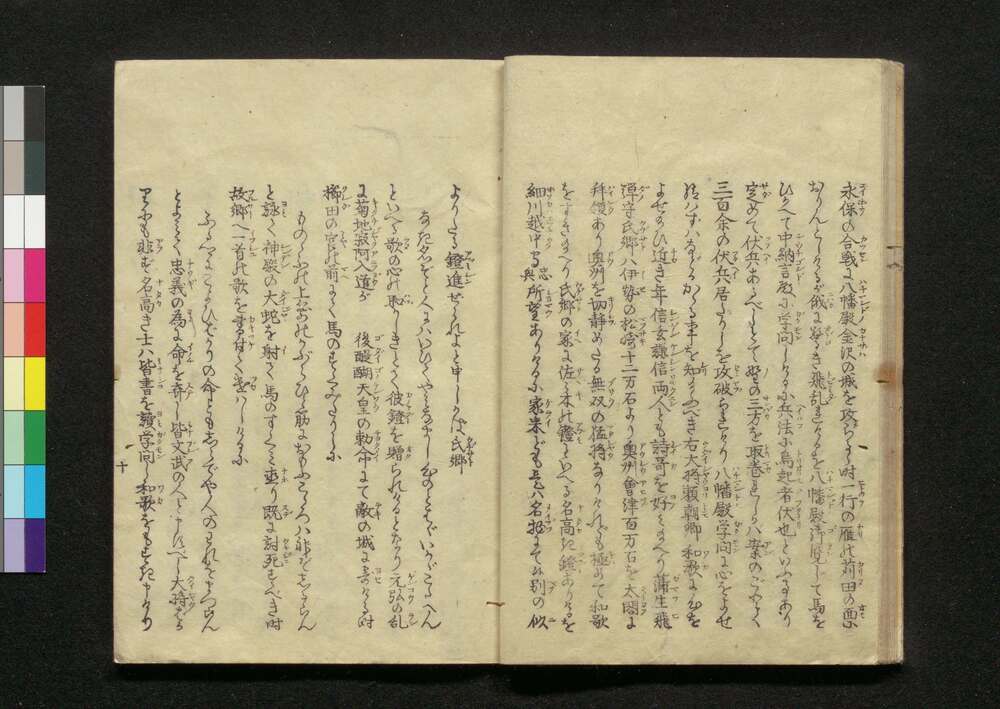 永保の合戦に八幡殿金沢の城を攻らるゝ時一行の雁の苅田の面に
おりんとしけるが俄に驚き飛乱ければを八幡殿御覧して馬を
ひかへて中納言教へ学問しけるに兵法に鳥起者伏也といふ事あり
定めて伏兵あるべしとて野の三方を取巻れしければ案のごとく
三百余の伏兵居たりしを攻破られけり八幡殿学問に心をよせ
給はずはなんぞかゝる事を知給ふべき右大将頼朝卿和歌に心を
よせ給ひ近き年信玄謙信両人とも詩哥を好み給へり蒲生飛
弾守氏郷ハ伊勢の松崎十二万石より奥州會津百万石を太閤に
拝領あり奥州を切静めたる無双の猛将なりけれども極めて和歌
をすき給へり氏郷の家に佐々木の鐙といへる名高き鐙ありけるを
細川越中守忠興所望ありけるに家来ども是ハ名物にて候別の似
よりたる鐙進ぜられよと申しければ氏郷
なき名ぞと人にハいひてやみなまし心のとはゞいかゞこたへん
といへる歌の心の恥かしきとて彼鐙を贈られけるとなり元弘の乱
に菊地寂阿入道が　後醍醐天皇の勅命にて敵の城に寄ける時
櫛田の宮の前にて馬のすくみたりけるに
ものゝふの上矢のかぶらひと筋におもふこゝろハ神ぞしるらん
と詠て神殿の大蛇を射て馬のすくみも直り既に討死すべき時
故郷へ一首の歌を書付て遣ハしけるに
ふるさとにこよひばかりの命ともしらでや人のわれをまつらん
とよみて忠義の為に命を弃し皆文武の人と申すべし大将たる
人にも非ず名高き士ハ皆書を讀学問し和歌をもすきけり
十